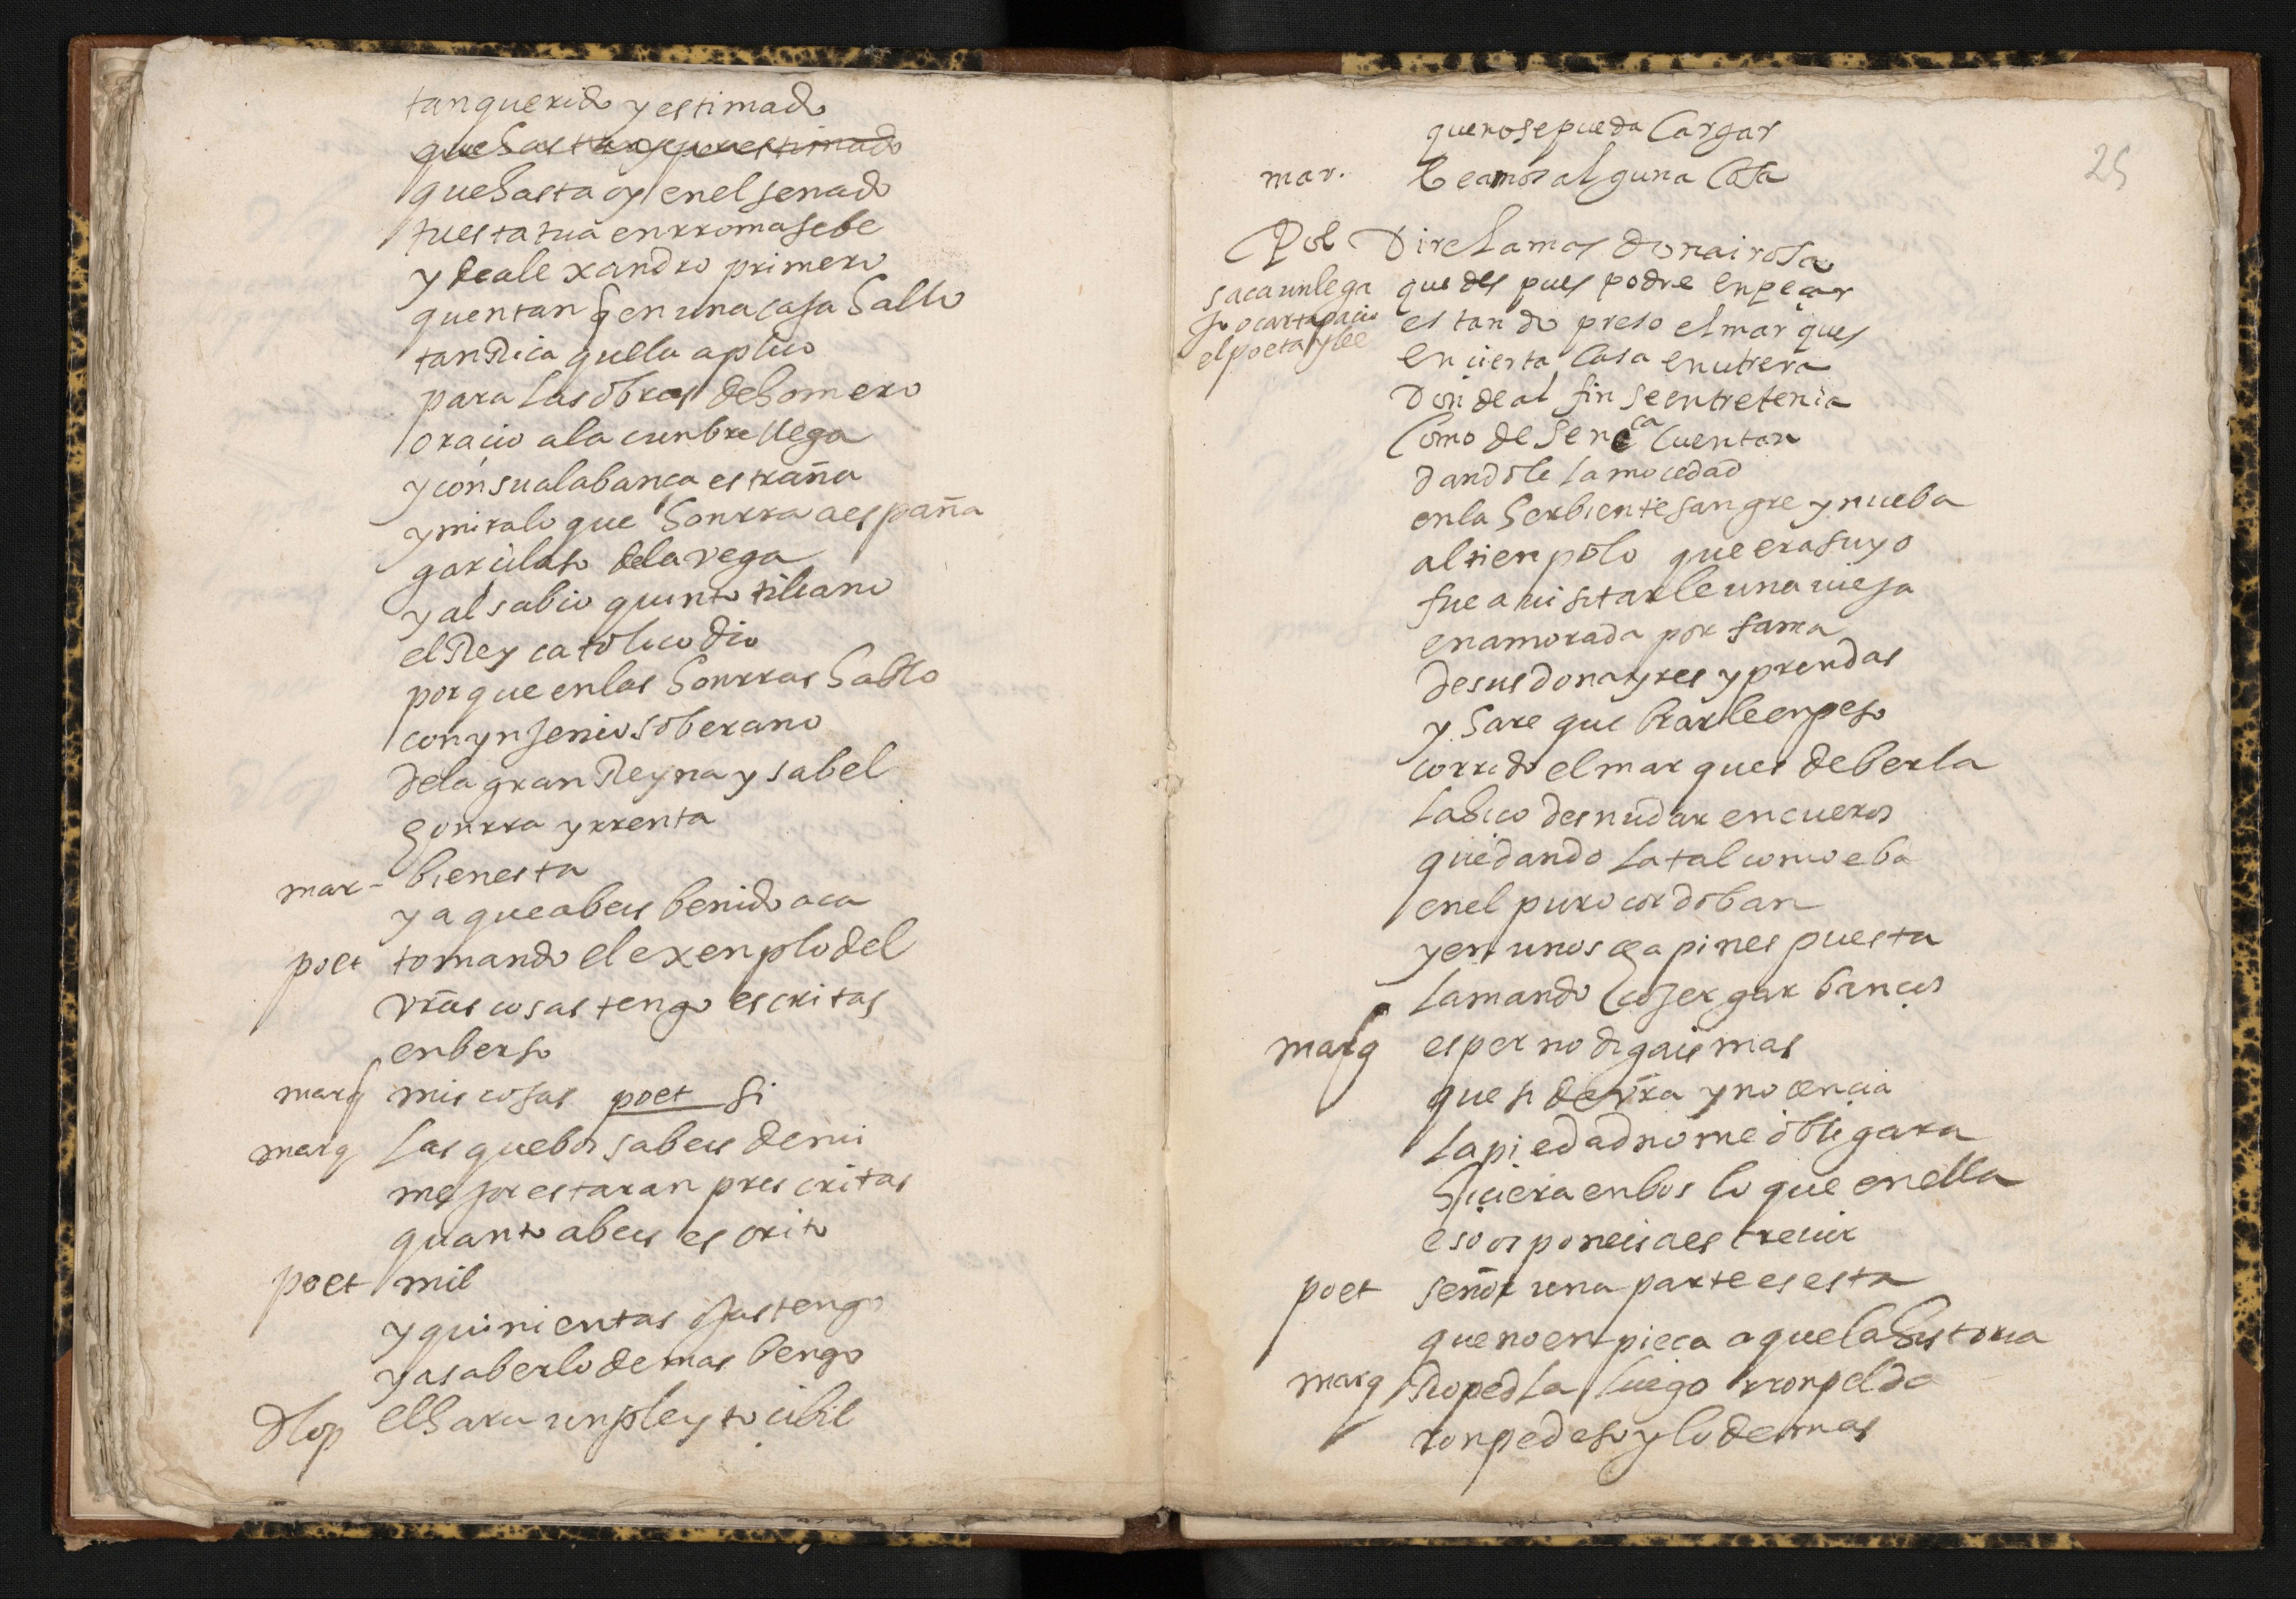 tan querido y estimado
que hasta oy en el senado
tu estatua en rroma se be
y de alexandro primero
quentan q en una casa hallo
tan Rica que la aplico
para las obras de homero
oracio a la cunbre llega
y con su alabança estraña
y mira lo que honrra a españa
garcilaso de la vega
y al sabio quintiliano
el Rey catolico dio
porque en las honrras hablo
con ynjenio soberano
de la gran Reyna ysabel
honrra y rrenta
mar - bien esta
ya que abeis benido aca
poet tomando el exenplo del
vras cosas tengo escritas
en berso
marq mis cosas poet si
marq las que bos sabeis de mi
mejor estaran prescritas
quanto abeis escrito
poet mil
y quinientas ojas tengo
y a saber lo demas bengo
Dlop el hara un pleyto cibil
25
que no se pueda Cargar
mar. leamos alguna Cosa
Pol Dire la mas donairosa
saca un lega
jo o cartapacio
el poeta y lee
que despues podre enpeçar
estando preso el marques
en cierta Casa en utrera
Donde al fin se entretenia
Como de Seneca Cuentan
dandole la mocedad
en la herbiente sangre y nueba
al tienpo lo que era suyo
fue a visitarle una vieja
enamorada por fama
de sus donayres y prendas
y hare quebrarle en peso
corrido el marques de berla
la hiço desnudar en cueros
quedando la tal como eba
en el puro cordoban
y en unos chapines puesta
la mando cojer garbanços
marq esper no digais mas
que si de vra ynocencia
la piedad no me obligara
hiciera en bos lo que en ella
eso os poneis a escrevir
poet señor una parte es esta
que no enpieça aqui la historia
marq Ronpedla luego rronpelda
ronped eso y lo demas